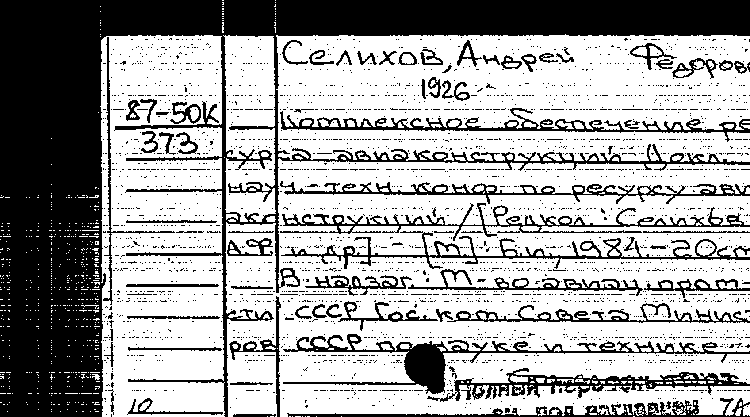 Селихов, Андрей Федоров
1926
87-50К
373
Комплексное обеспечение ре
сурса авиаконструкций. Докл.
науч.-техн. конф. по ресурсу ави
аконструкций / [Редкол.: Селихов
А.Ф. и др.]. - [М]: Б.и., 1984. - 20см
В надзаг.: М-во авиац. пром-
сти СССР, Гос. ком. Совета Минист
ров СССР по науке и технике,
Полный перечень
под заглавием 7А
10